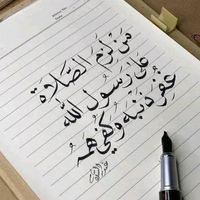 مَنْ لَزِمَ الصَّلَاةَ
عَلَى رَسُولِ اللهِ
غُفِرَ ذَنْبُهُ وَكُفِيَ هَمَّهُ